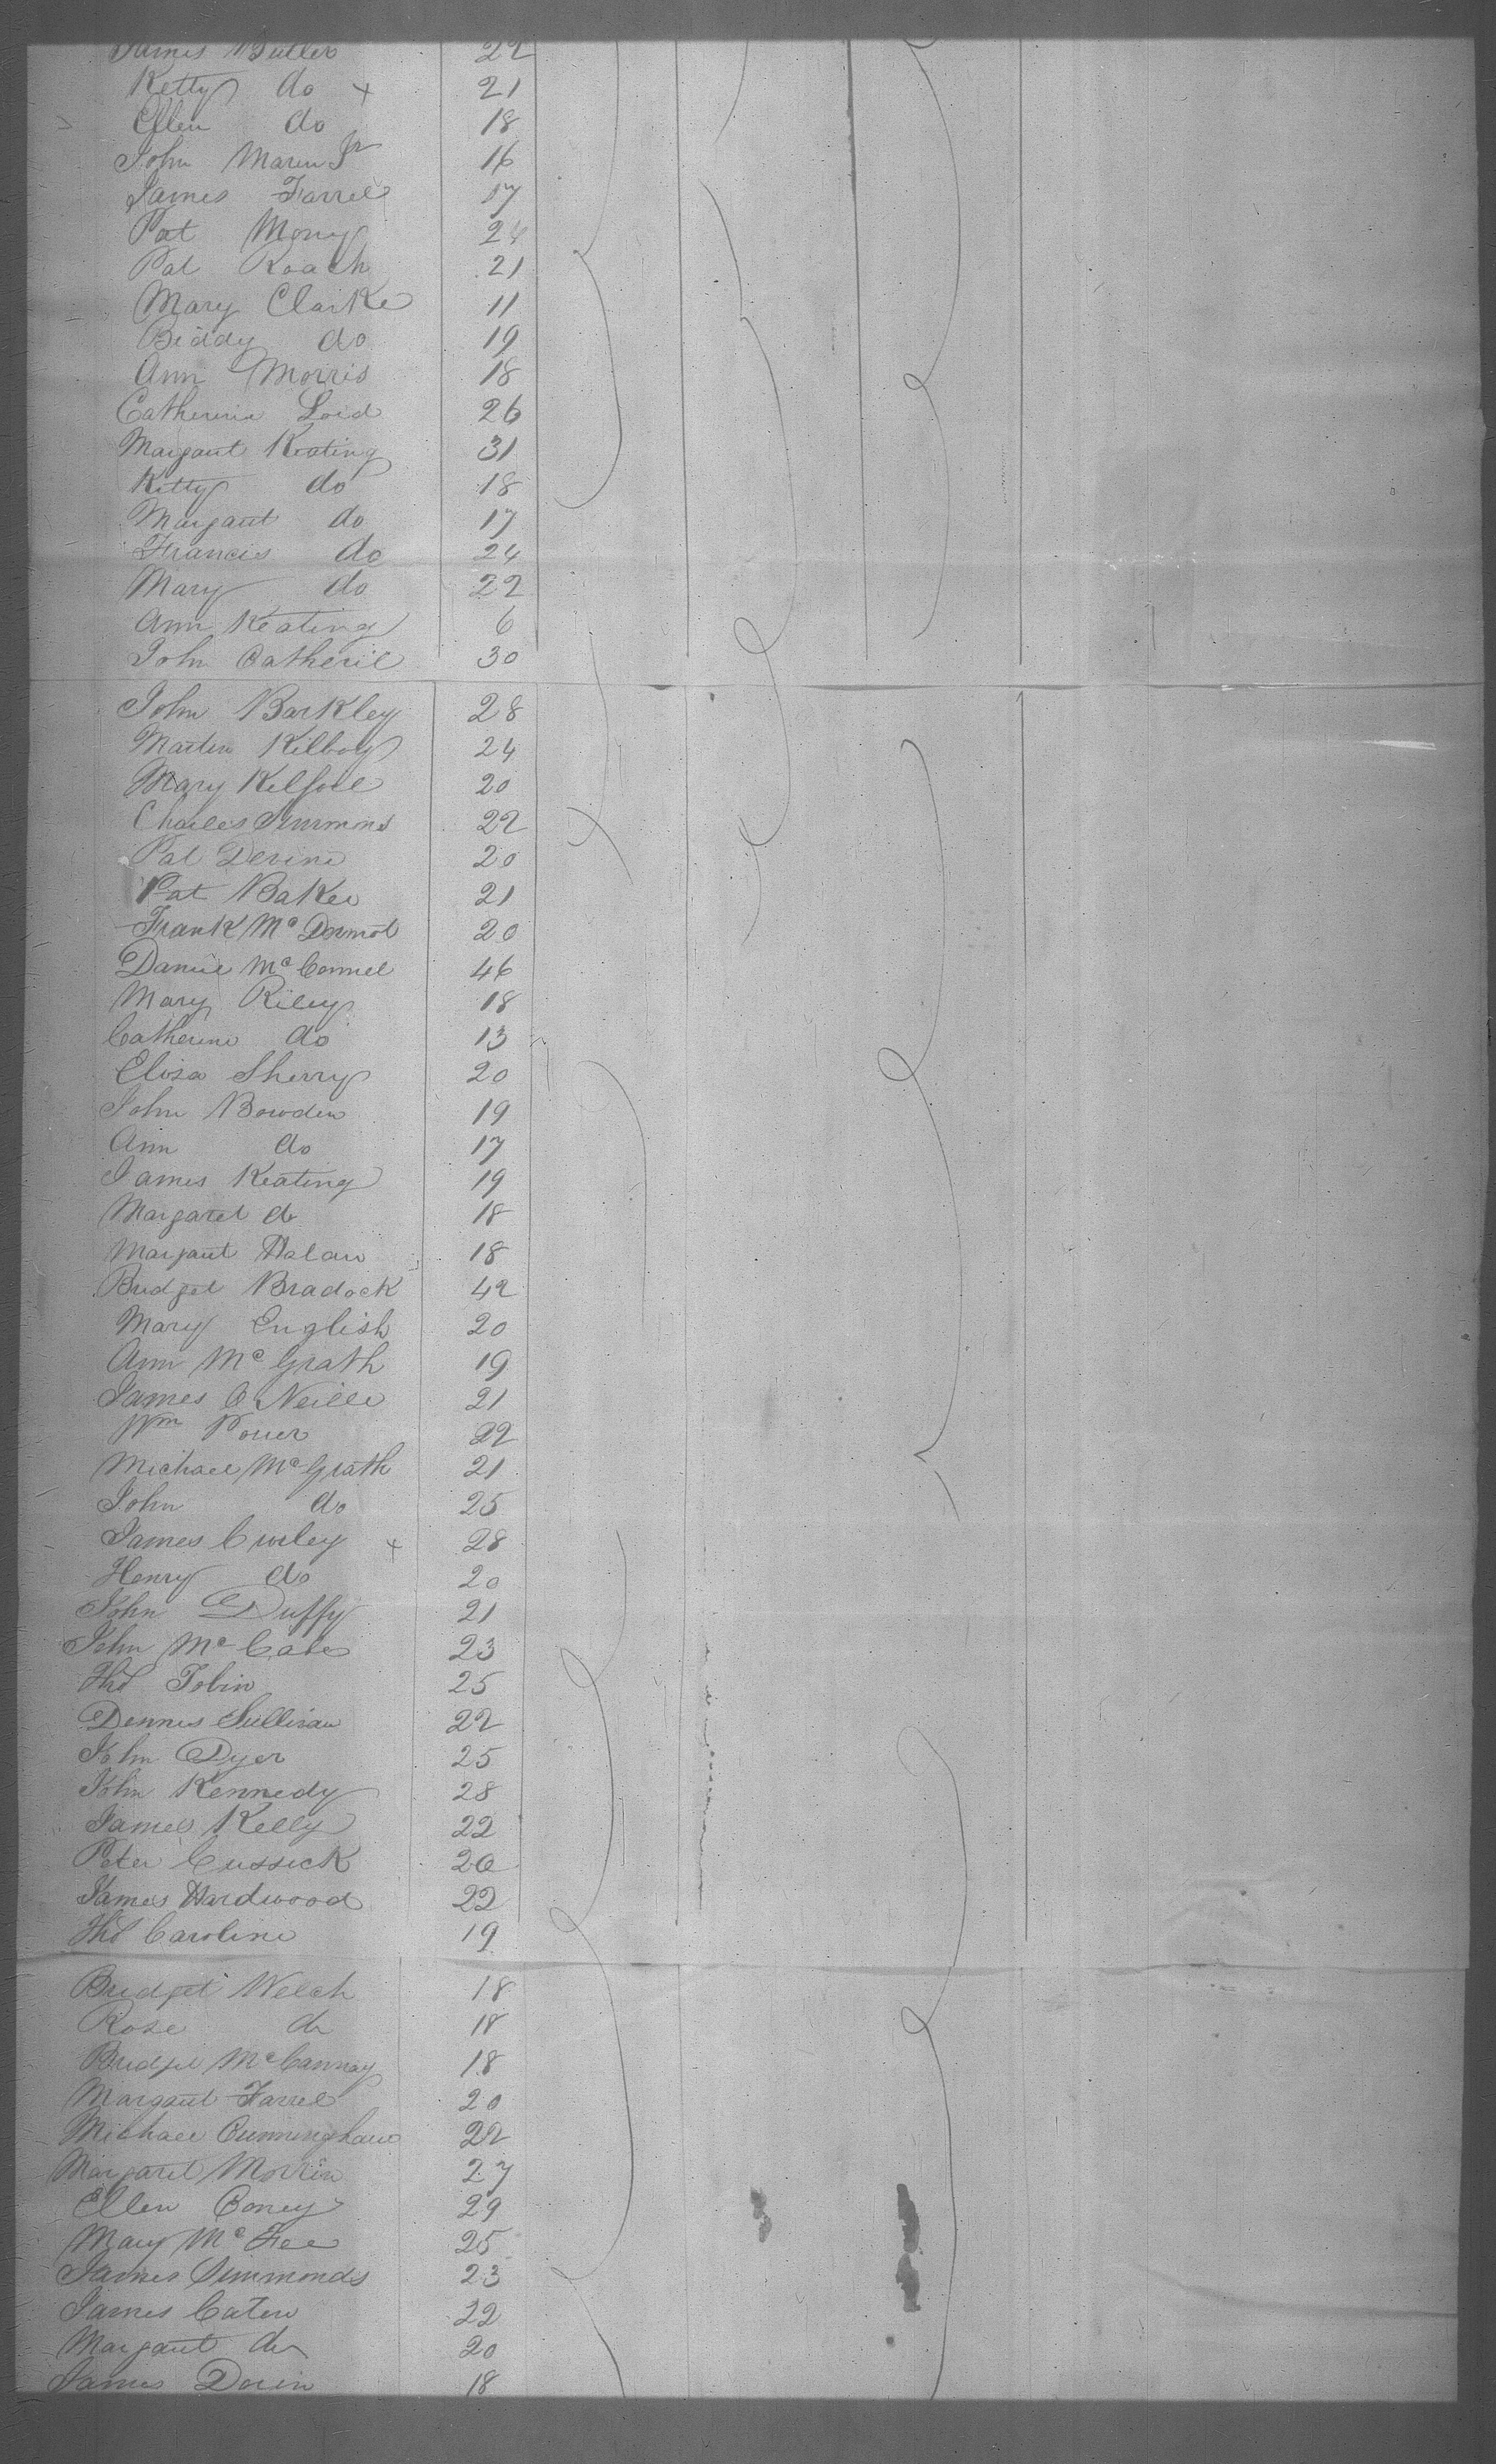 James Butler 22
Kitty do + 21
Ellen do 18
John Maren Jr 16
James Farrel 17
Pat 24
Pat Roach 21
Mary Clarke 11
Biddy do 19
Ann Morris 18
Catherine Loid 26
Margaret Keating 31
Kitty do 18
Margaret do 17
Francis do 24
Mary do 22
Ann Keating 6
John 30
John Barkley 28
Martin Kilboy 24
Mary 20
Charles Simmons 22
Pat Devine 20
Pat Baker 21
Frank Mc Dermot 20
Daniel Mc Connel 46
Mary Riley 18
Catherine do 13
Eliza Sherry 20
John Bowden 19
Ann do 17
James Keating 19
Margaret do 18
Margaret 18
Bridget Bradock 42
Mary English 20
Ann Mc Grath 19
James O Neill 21
Wm Power 22
Michael Mc Grath 21
John do 25
James Curley + 28
Henry do 20
John Duffy 21
John Mc Cabe 23
Thos Tobin 25
Dennis Sullivan 22
John Dyer 25
John Kennedy 28
James Kelly 22
Peter Cussick 20
James Hardwood 22
Thos Caroline 19
Bridget Welch 18
Rose do 18
Bridget 18
Margaret Farrel 20
Michael Cunningham 22
Margaret Morrin 27
Ellen 29
Mary Mc Fee 25
James Simmonds 23
James Caten 22
Margaret do 20
James 18